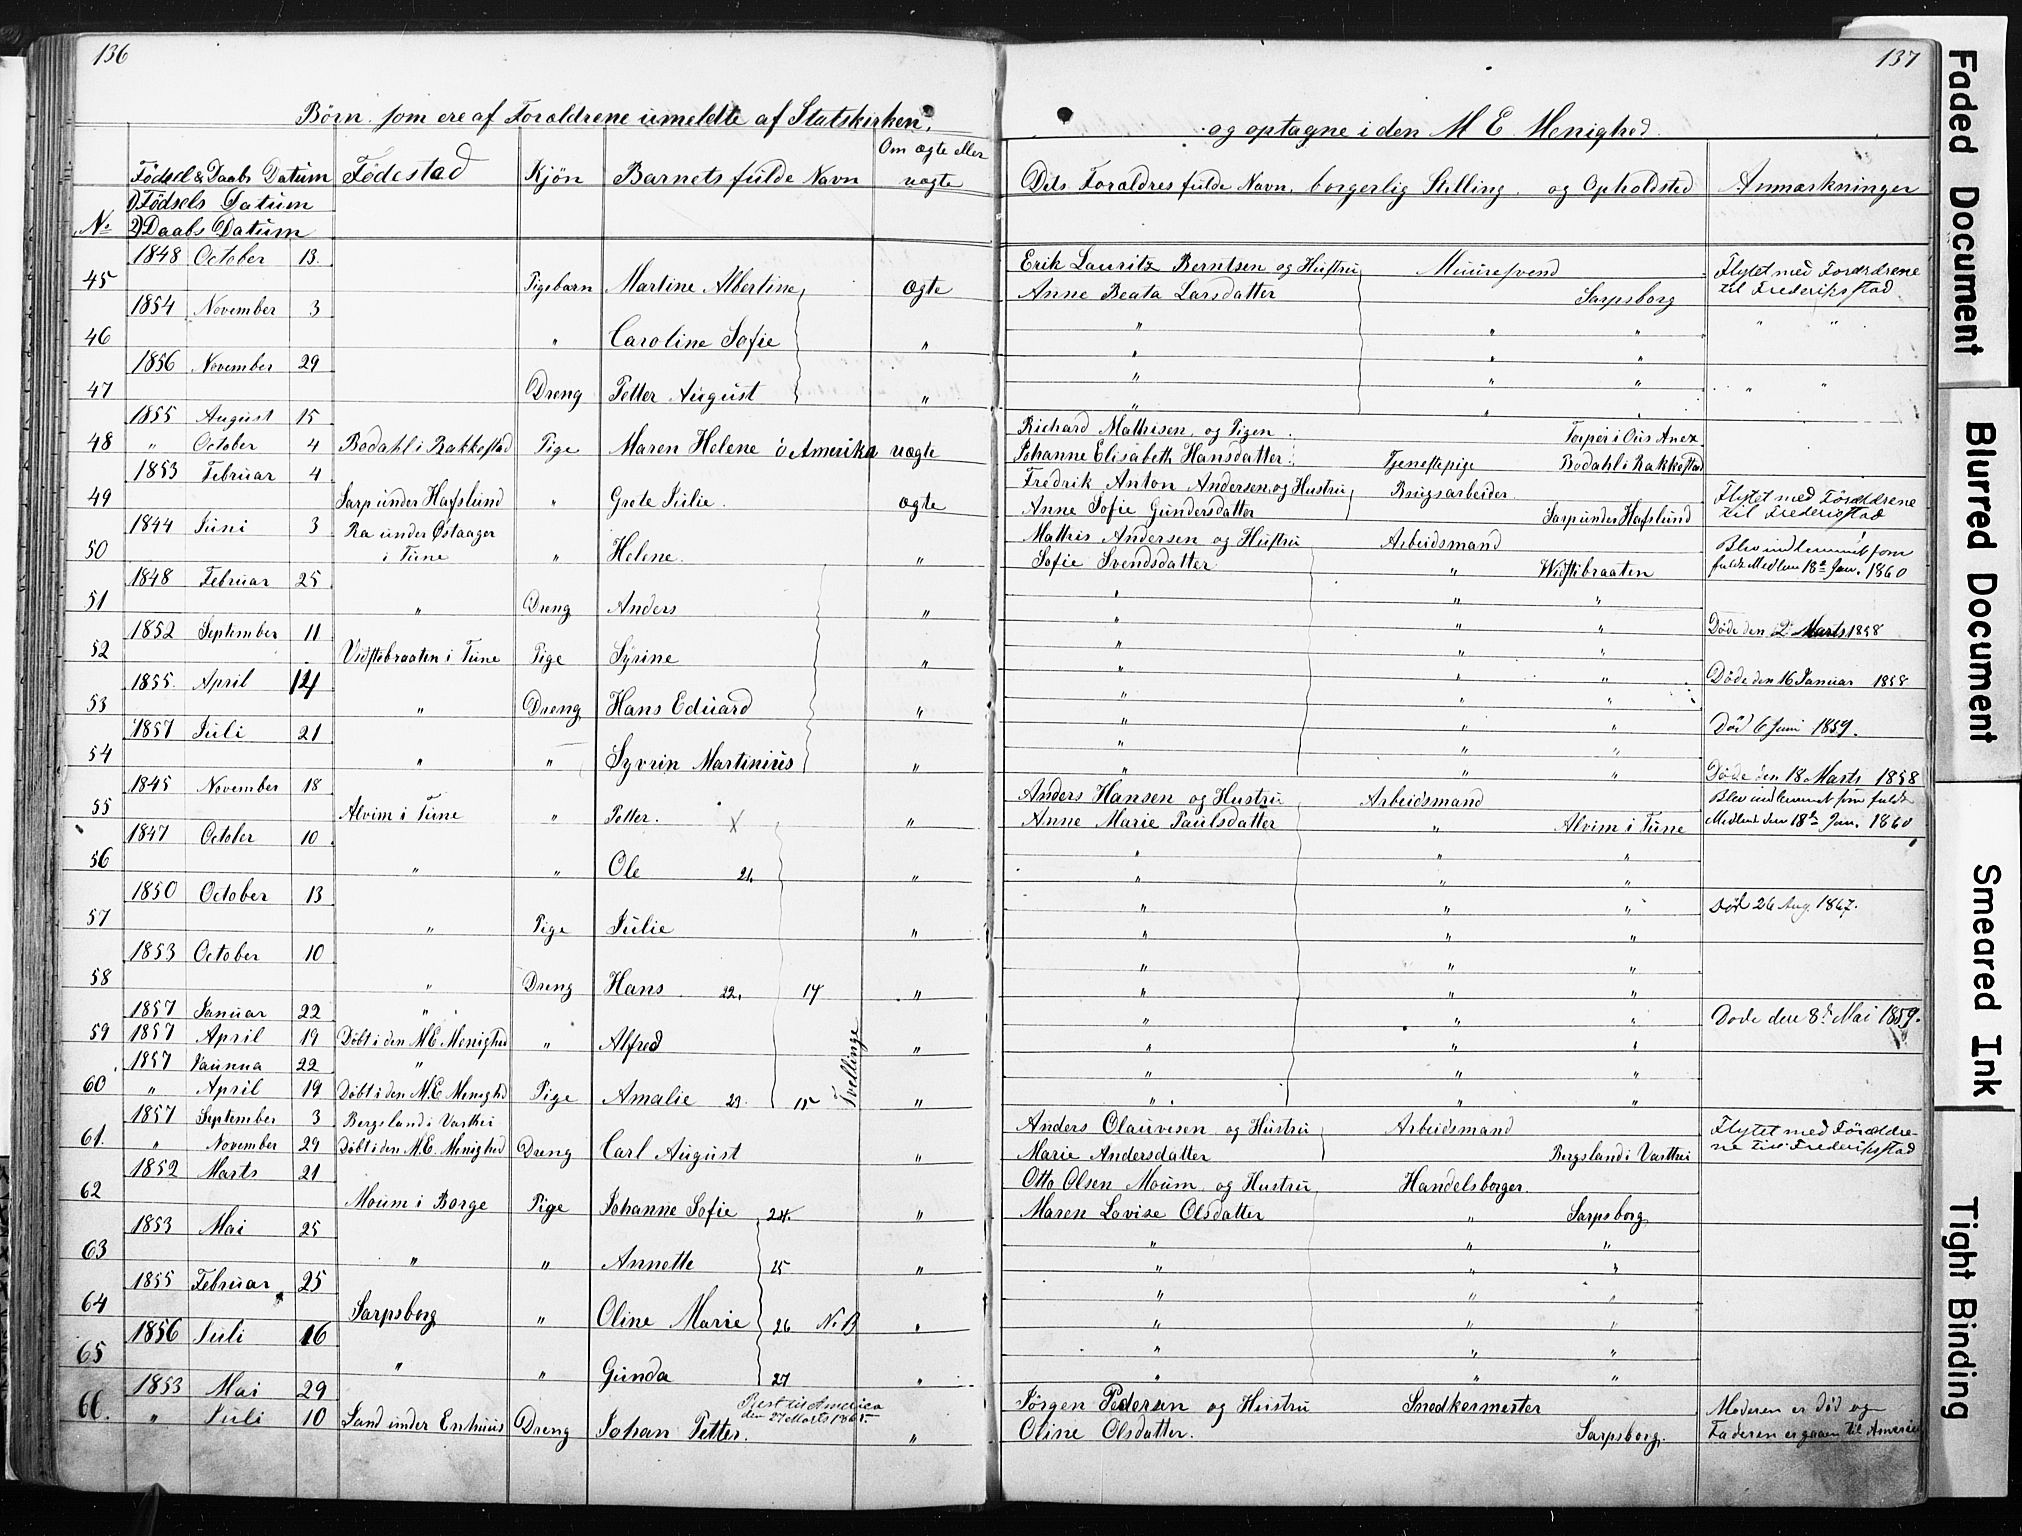 136
Børn som ere af Forældrene umeldte af Statskirken,
Fødsel & Daabs Datum Fødestad Kjøn Barnets fulde Navn Om ægte eller uægte
1) Fødsels Datum
No 2) Daabs Datum
1848 October 13.
45 Pigebarn Martine Albertine Ægte
1854 November 3
46 " Caroline Sofie "
1856 November 29
47 Dreng Petter August "
1855 August 15
48 " October 4 Bodahl i Rakkestad Pige Maren Helene i Amerika uægte
1853 Februar 4
49 Sarp under Hafslund " Grete Julie. ægte
1844 Juni 3 Ra under Østaager
50 i Tune " Helene. "
1848 Februar 25
51 " Dreng Anders "
1852 September 11
52 Vidstebraaten i Tune Pige Syrine "
1855. April 14
53 " Dreng Hans Eduard "
1857 Juli 21
54 " " Syvrin Martinius "
1845 November 18
55 Alvim i Tune " Petter. X "
1847 October 10
56 " " Ole 21. "
1850 October 13
57 " Pige Julie "
1853 October 10
58 " Dreng Hans 22. 14 "
1857 Januar 22 "
59 1857 April 19 Døbt i den M.E. Menighed " Alfred "
1857 22 "
60 " April 19 Døbt i den M.E. Menighed Pige Amalie 23. 15 Tvellinge "
1857 September 3 Bergsland i
61. " November 29 Døbt i den M.E. Menighed Dreng Carl August "
1852 Marts 21
62 Moum i Borge Pige Johanne Sofie 24. "
1853 Mai 25
63 " " Annette 25 "
1855 Februar 25
64 Sarpsborg " Oline Marie 26 N.B "
1856 Juli 16
65 " " Gunda 27 "
1853 Mai 29 Rest til America
66. " Juli 10 Sand under Enhuus Dreng Johan Petter. den 27 Marts "
137
og optagne i den M E Menighed.
Dets Forældres fulde Navn, borgerlig Stilling, og Opholdsted Anmærkninger
Erik Lauritz Berntsen og Hustru Muursvend Flytet med Forældrene
Anne Beata Larsdatter Sarpsborg til Frederiksstad
" " " " "
" " "
" " " " "
" " "
Richard Mathisen og Pigen Torper i Ous Anex
Johanne Elisabeth Hansdatter. Tjenestepige Bodahl i Rakkestad
Fredrik Anton Andersen, og Hustru Brugsarbeider. Flytet med Forældrene
Anne Sofie Gundersdatter Sarp under Hafslund til Frederiksstad
Mathis Andersen og Hustru Arbeidsmand Blev indlemmet som
Sofie Svendsdatter " Widstibraaten fuldt Medlem 18de Jan. 1860
" " "
" " " Døde den 2 Marts 1858
" " "
" " " Døde den 16 Januar 1858
" " "
" " " Død 6 Juni 1859.
" " "
" " " Døde den 18 Marts 1858
Anders Hansen og Hustru Arbeidsmand Blev indlemmet som fuldt
Anne Marie Paulsdatter " Alvim i Tune Medlem den 18de Jan. 1860
" " "
" " "
" " " Død 26 Aug. 1867.
" " "
" " "
" " "
" " " Døde den 8de Mai 1859.
" " "
" " "
" " "
Anders Olauvesen og Hustru Arbeidsmand Flytet med Foræeldre-
Marie Andersdatter Bergsland i ne til Frederiksstad
Otto Olsen Moum og Hustru Handelsborger.
Maren Lovise Olsdatter " Sarpsborg
" " "
" " "
" " "
" " "
" " "
" " "
Jørgen Pedersen og Hustru Snedkermester Moderen er død og
Oline Olsdatter. Sarpsborg. Faderen er gaaen til Amerika
Faded Document
Blurred Document
Smeared Ink
Tight Binding